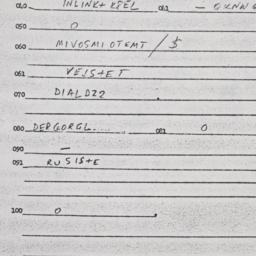 040 INLINK+ 012 –
050 0
060 MIVOSMIOTEMT / $
061 VEJS+ET
070 DIALDZ2 .
080 DERGORGL..... 081 0
090 —
091 RUSIS+E
100 0